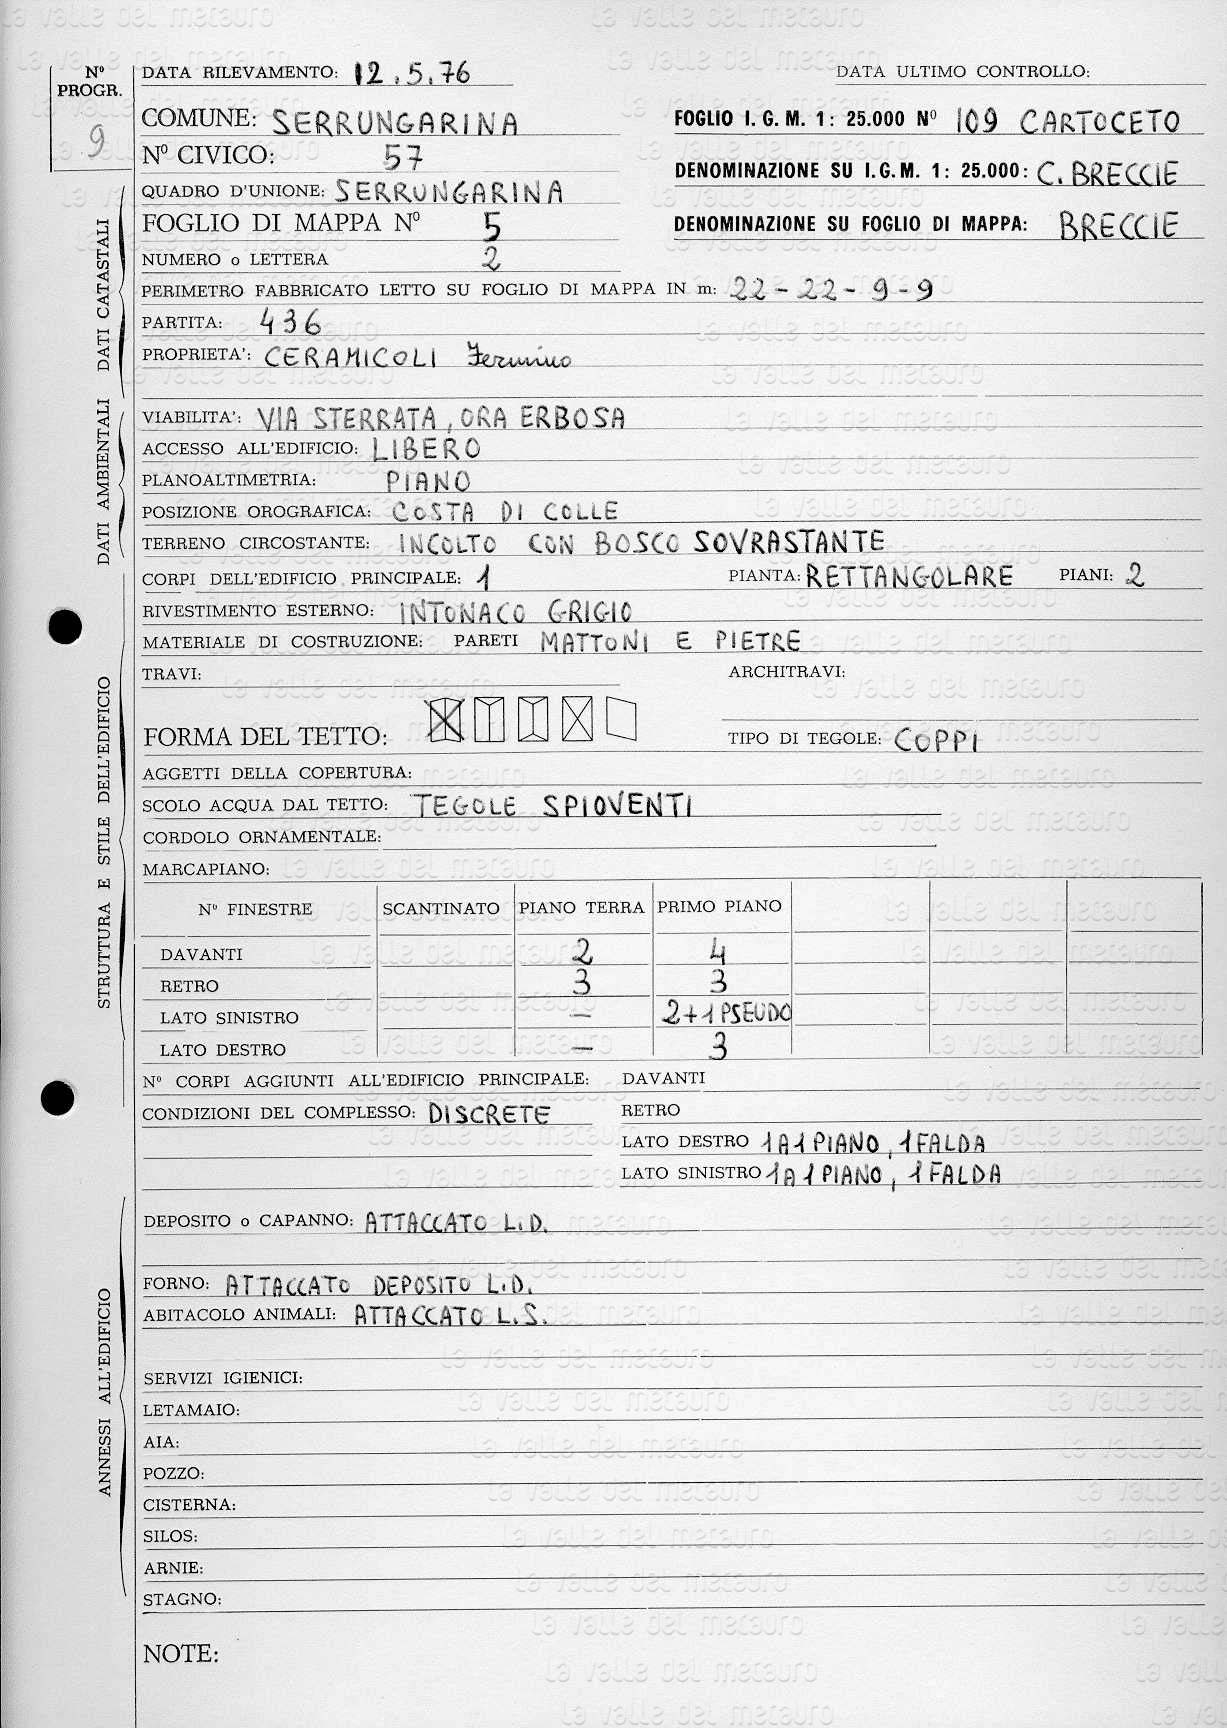 Nº PROGR. 9
DATA RILEVAMENTO: 12.5.76 DATA ULTIMO CONTROLLO:
COMUNE: SERRUNGARINA FOGLIO I. G. M. 1: 25.000 Nº 109 CARTOCETO
Nº CIVICO: 57 DENOMINAZIONE SU I.G.M. 1: 25.000: C. BRECCIE
QUADRO D'UNIONE: SERRUNGARINA
FOGLIO DI MAPPA Nº 5 DENOMINAZIONE SU FOGLIO DI MAPPA: BRECCIE
NUMERO o LETTERA 2
PERIMETRO FABBRICATO LETTO SU FOGLIO DI MAPPA IN m: 22 - 22 - 9 - 9
PARTITA: 436
PROPRIETA': CERAMICOLI Fermino
DATI CATASTALI
VIABILITA': VIA STERRATA, ORA ERBOSA
ACCESSO ALL'EDIFICIO: LIBERO
PLANOALTIMETRIA: PIANO
POSIZIONE OROGRAFICA: COSTA DI COLLE
TERRENO CIRCOSTANTE: INCOLTO CON BOSCO SOVRASTANTE
DATI AMBIENTALI
CORPI DELL'EDIFICIO PRINCIPALE: 1 PIANTA: RETTANGOLARE PIANI: 2
RIVESTIMENTO ESTERNO: INTONACO GRIGIO
MATERIALE DI COSTRUZIONE: PARETI MATTONI E PIETRE
TRAVI: ARCHITRAVI:
FORMA DEL TETTO: TIPO DI TEGOLE: COPPI
AGGETTI DELLA COPERTURA:
SCOLO ACQUA DAL TETTO: TEGOLE SPIOVENTI
CORDOLO ORNAMENTALE:
MARCAPIANO:
Nº FINESTRE SCANTINATO PIANO TERRA PRIMO PIANO
DAVANTI 2 4
RETRO 3 3
LATO SINISTRO — 2+1 PSEUDO
LATO DESTRO — 3
STRUTTURA E STILE DELL'EDIFICIO
Nº CORPI AGGIUNTI ALL'EDIFICIO PRINCIPALE: DAVANTI
CONDIZIONI DEL COMPLESSO: DISCRETE RETRO
LATO DESTRO 1 A 1 PIANO, 1 FALDA
LATO SINISTRO 1 A 1 PIANO, 1 FALDA
DEPOSITO o CAPANNO: ATTACCATO L.D.
FORNO: ATTACCATO DEPOSITO L.D.
ABITACOLO ANIMALI: ATTACCATO L.S.
SERVIZI IGIENICI:
LETAMAIO:
AIA:
POZZO:
CISTERNA:
SILOS:
ARNIE:
STAGNO:
ANNESSI ALL'EDIFICIO
NOTE:
la valle del metauro